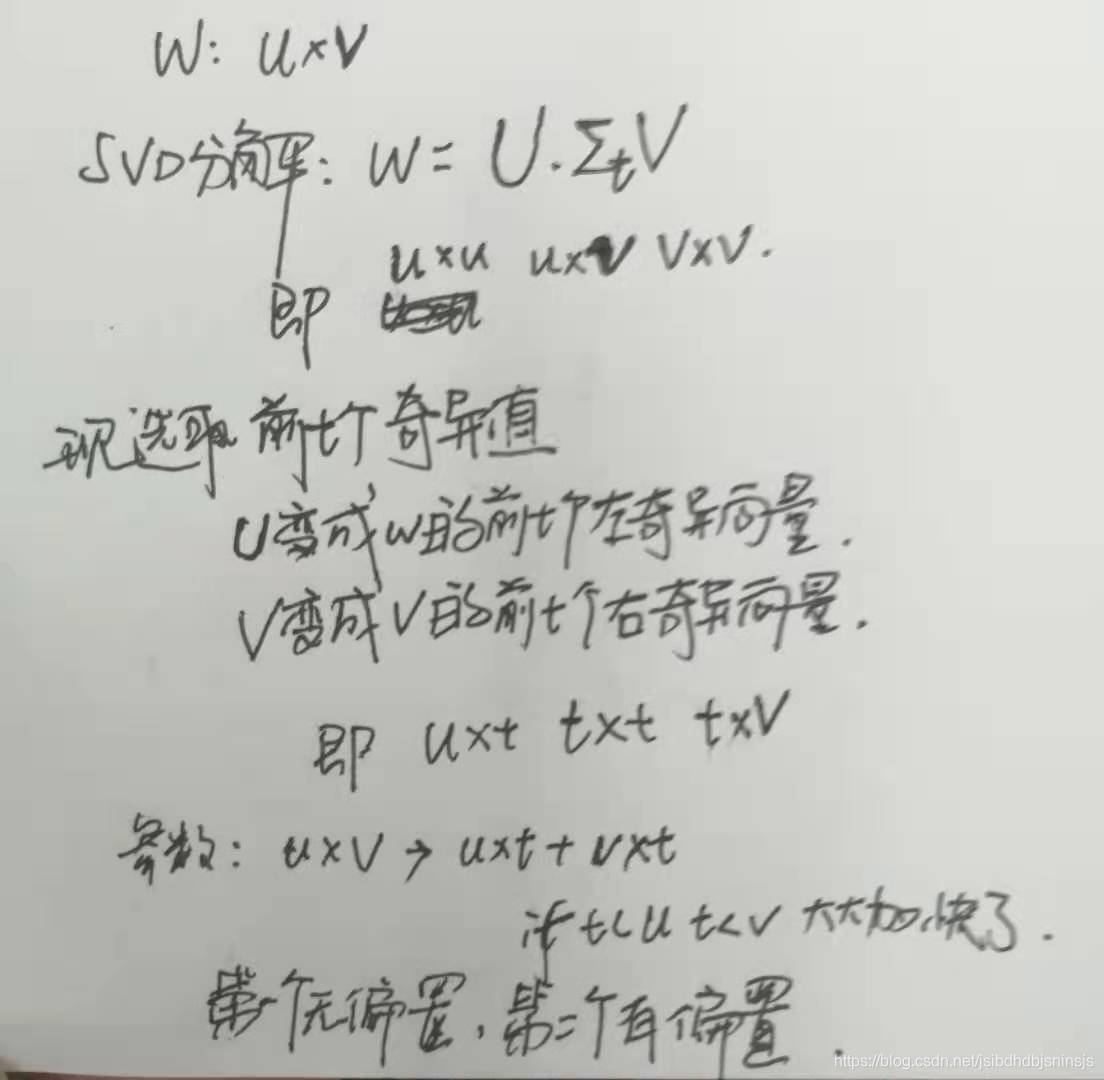 W: u×v
SVD分解: W = U·Σₜ V
u×u u×v v×v.
即
现选取前t个奇异值
U变成W的前t个左奇异向量.
V变成V的前t个右奇异向量.
即 u×t t×t t×v
参数: u×v → u×t + v×t
if t<u t<v 大大加快了.
第一个无偏置, 第二个有偏置.
https://blog.csdn.net/jsibdhdbjsninsjs